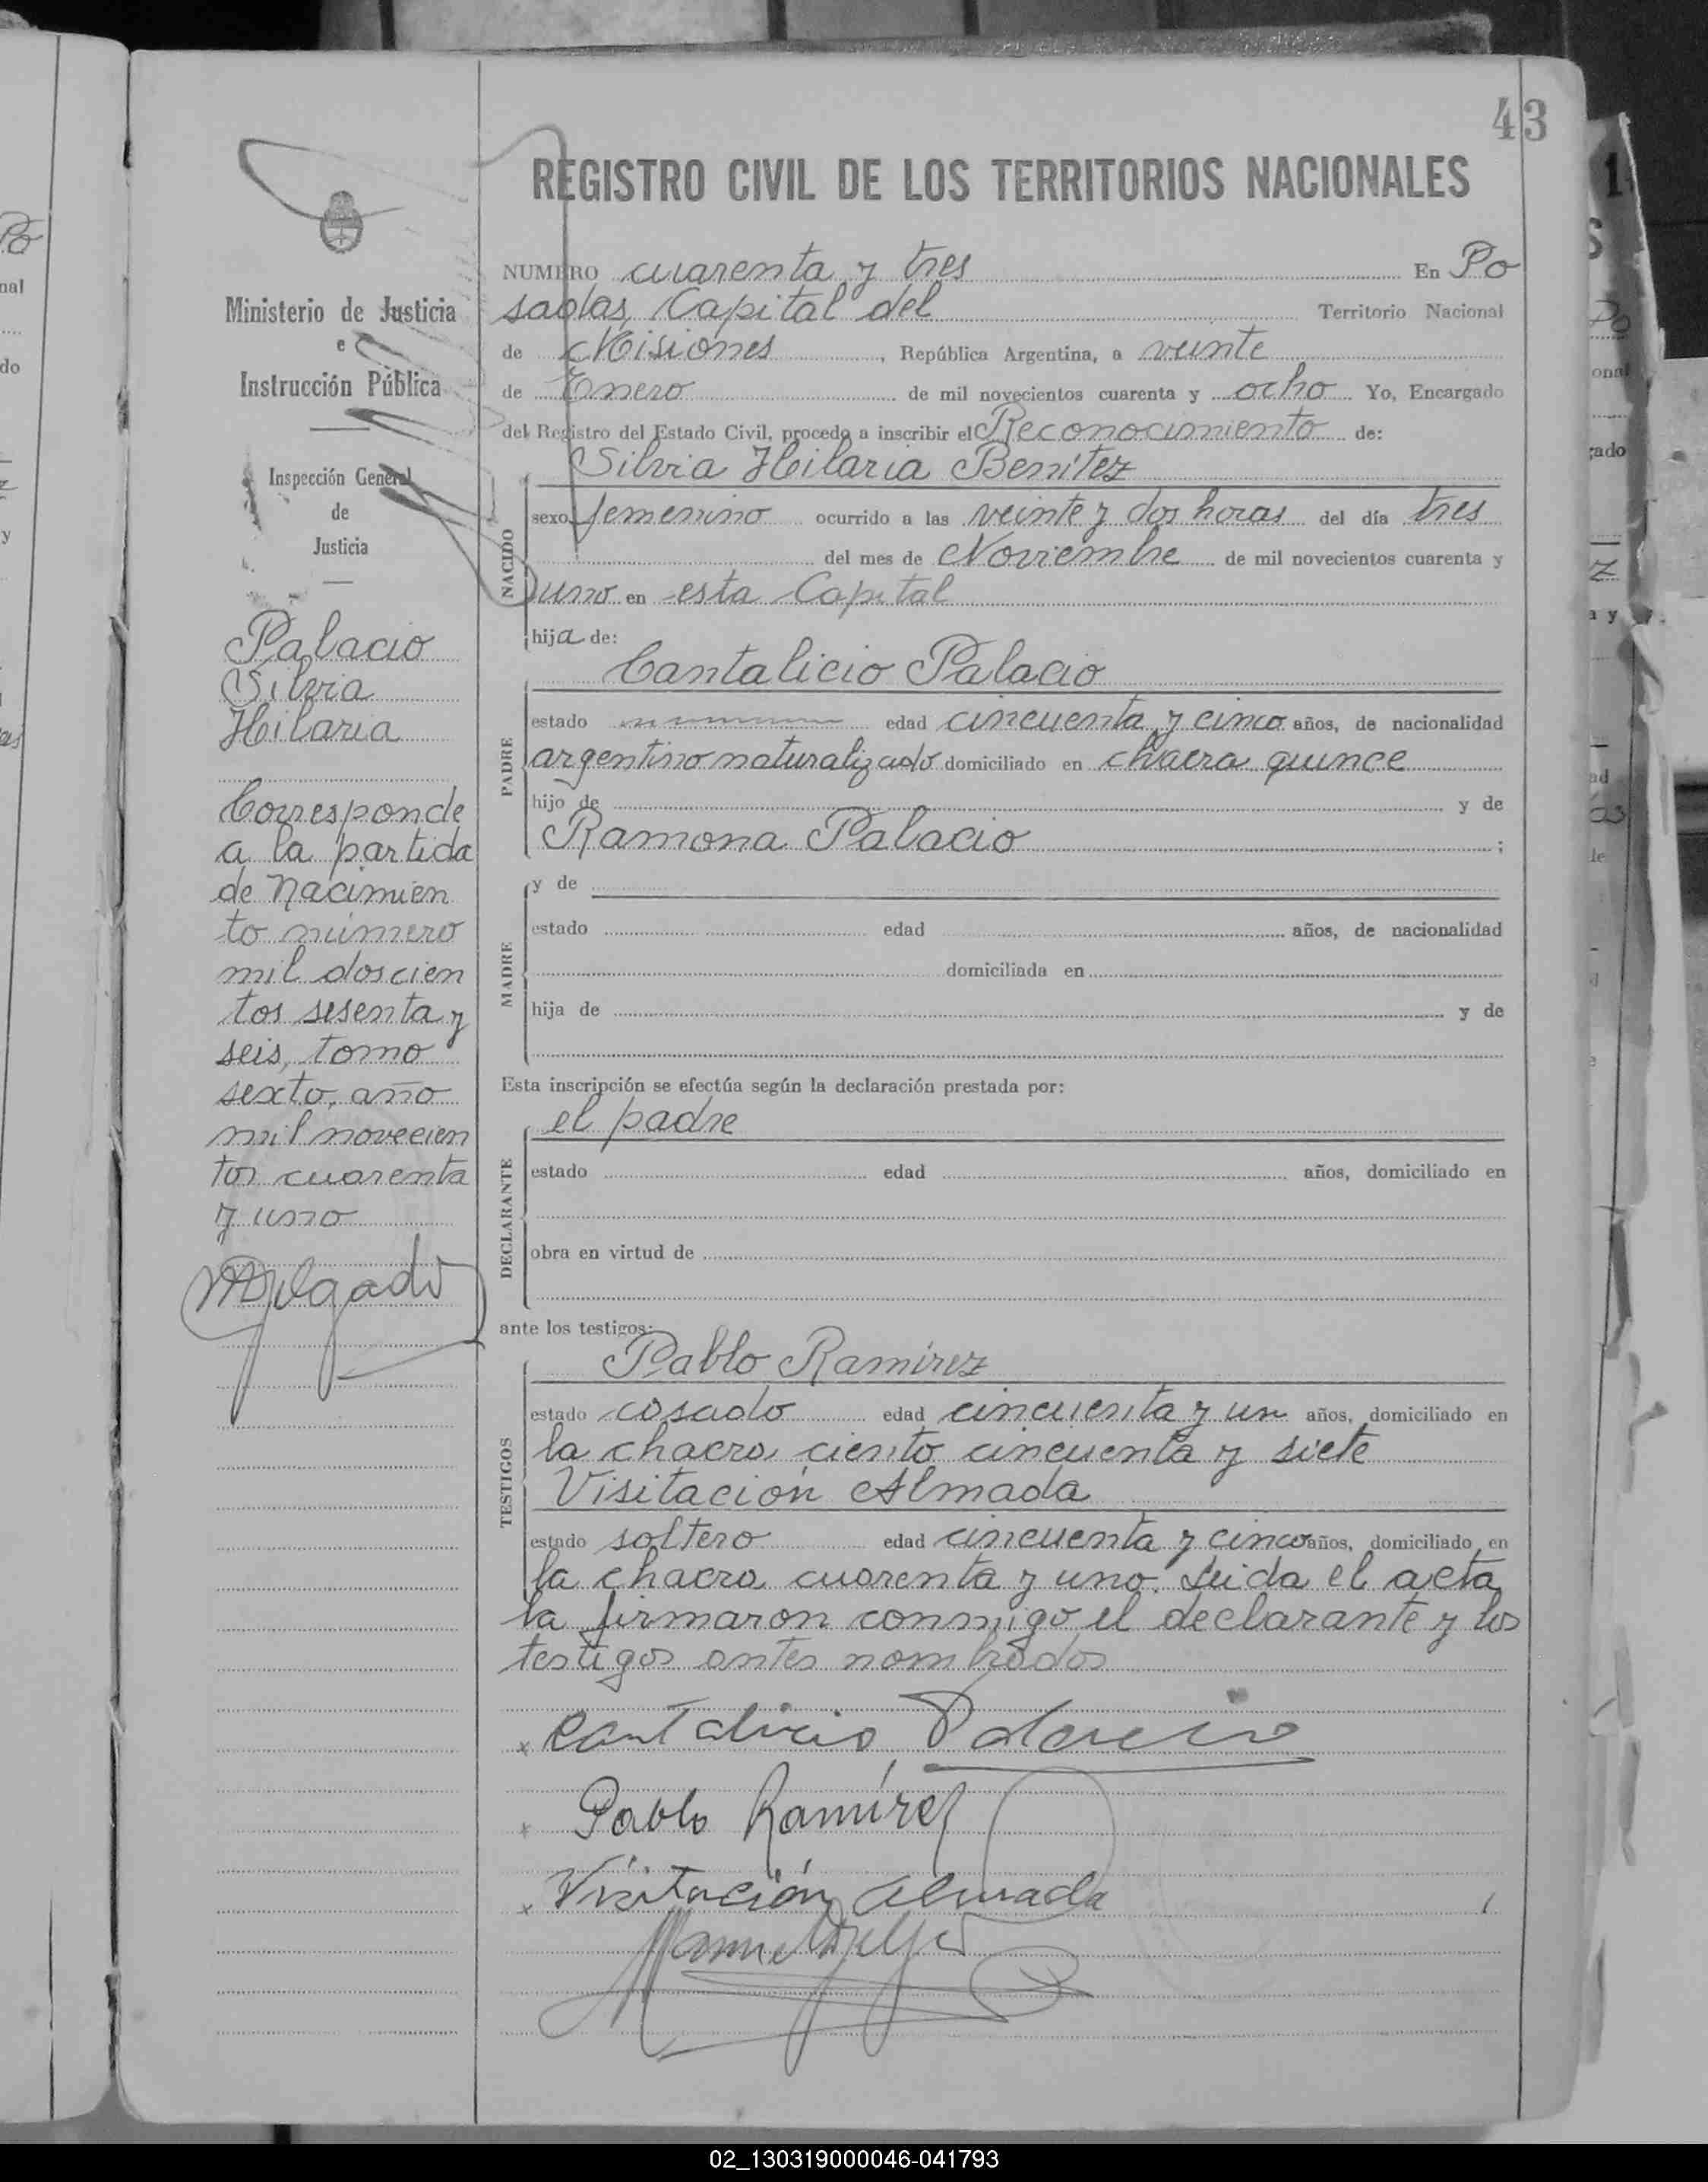 43
REGISTRO CIVIL DE LOS TERRITORIOS NACIONALES
Ministerio de Justicia
e
Instrucción Pública
Inspección General
de
Justicia
Palacio
Silvia
Hilaria
Corresponde
a la partida
de Nacimien
to número
mil doscien
tos sesenta y
seis, tomo
sexto, año
mil novecien
tos cuarenta
y uno
NUMERO cuarenta y tres En Po
sadas, Capital del Territorio Nacional
de Misiones, República Argentina, a veinte
de Enero de mil novecientos cuarenta y ocho Yo, Encargado
del Registro del Estado Civil, procedo a inscribir el Reconocimiento de:
Silvia Hilaria Benítez
NACIDO
sexo femenino ocurrido a las veinte y dos horas del día tres
del mes de Noviembre de mil novecientos cuarenta y
uno en esta Capital
hija de:
Cantalicio Palacio
PADRE
estado edad cincuenta y cinco años, de nacionalidad
argentino naturalizado domiciliado en chacra quince
hijo de y de
Ramona Palacio ;
MADRE
y de
estado edad años, de nacionalidad
domiciliada en
hija de y de
Esta inscripción se efectúa según la declaración prestada por:
el padre
DECLARANTE
estado edad años, domiciliado en
obra en virtud de
ante los testigos:
Pablo Ramírez
TESTIGOS
estado casado edad cincuenta y un años, domiciliado en
la chacra ciento cincuenta y siete
Visitación Almada
estado soltero edad cincuenta y cinco años, domiciliado en
la chacra cuarenta y uno. Leida el acta
la firmaron conmigo el declarante y los
testigos antes nombrados
x Cantalicio Palacio
x Pablo Ramírez
x Visitación Almada
02_130319000046-041793